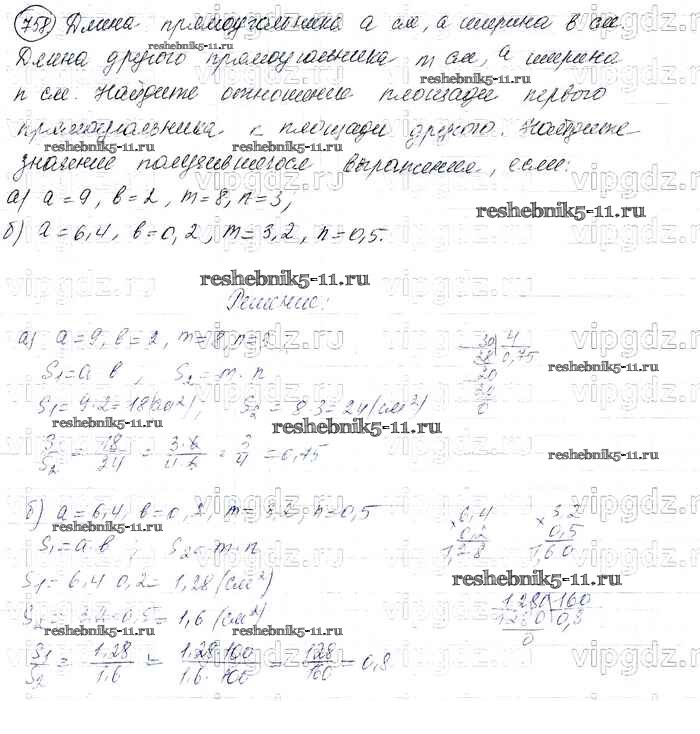 758) Длина прямоугольника a см, а ширина b см.
Длина другого прямоугольника m см, а ширина
n см. Найдите отношение площади первого
прямоугольника к площади другого. Найдите
значение получившегося выражения, если:
а) a=9, b=2, m=8, n=3,
б) a=6,4, b=0,2, m=3,2, n=0,5.
Решение:
а) a=9, b=2, m=8, n=3
S1=a b, S2=m·n
S1=9·2=18(см²), S2=8·3=24(см²)
S1/S2 = 18/24 = 3·6/4·6 = 3/4 = 0,75
30 | 4
28 | 0,75
20
0
б) a=6,4, b=0,2, m=3,2, n=0,5
S1=a·b, S2=m·n
S1=6,4 0,2=1,28(см²)
S2=3,2·0,5=1,6(см²)
S1/S2 = 1.28/1.6 = 1.28·100/1.6·100 = 128/160 = 0,8
×6,4
0,2
1,28
×3,2
0,5
1,60
1280 | 160
1280 | 0,8
0
reshebnik5-11.ru
vipgdz.ru